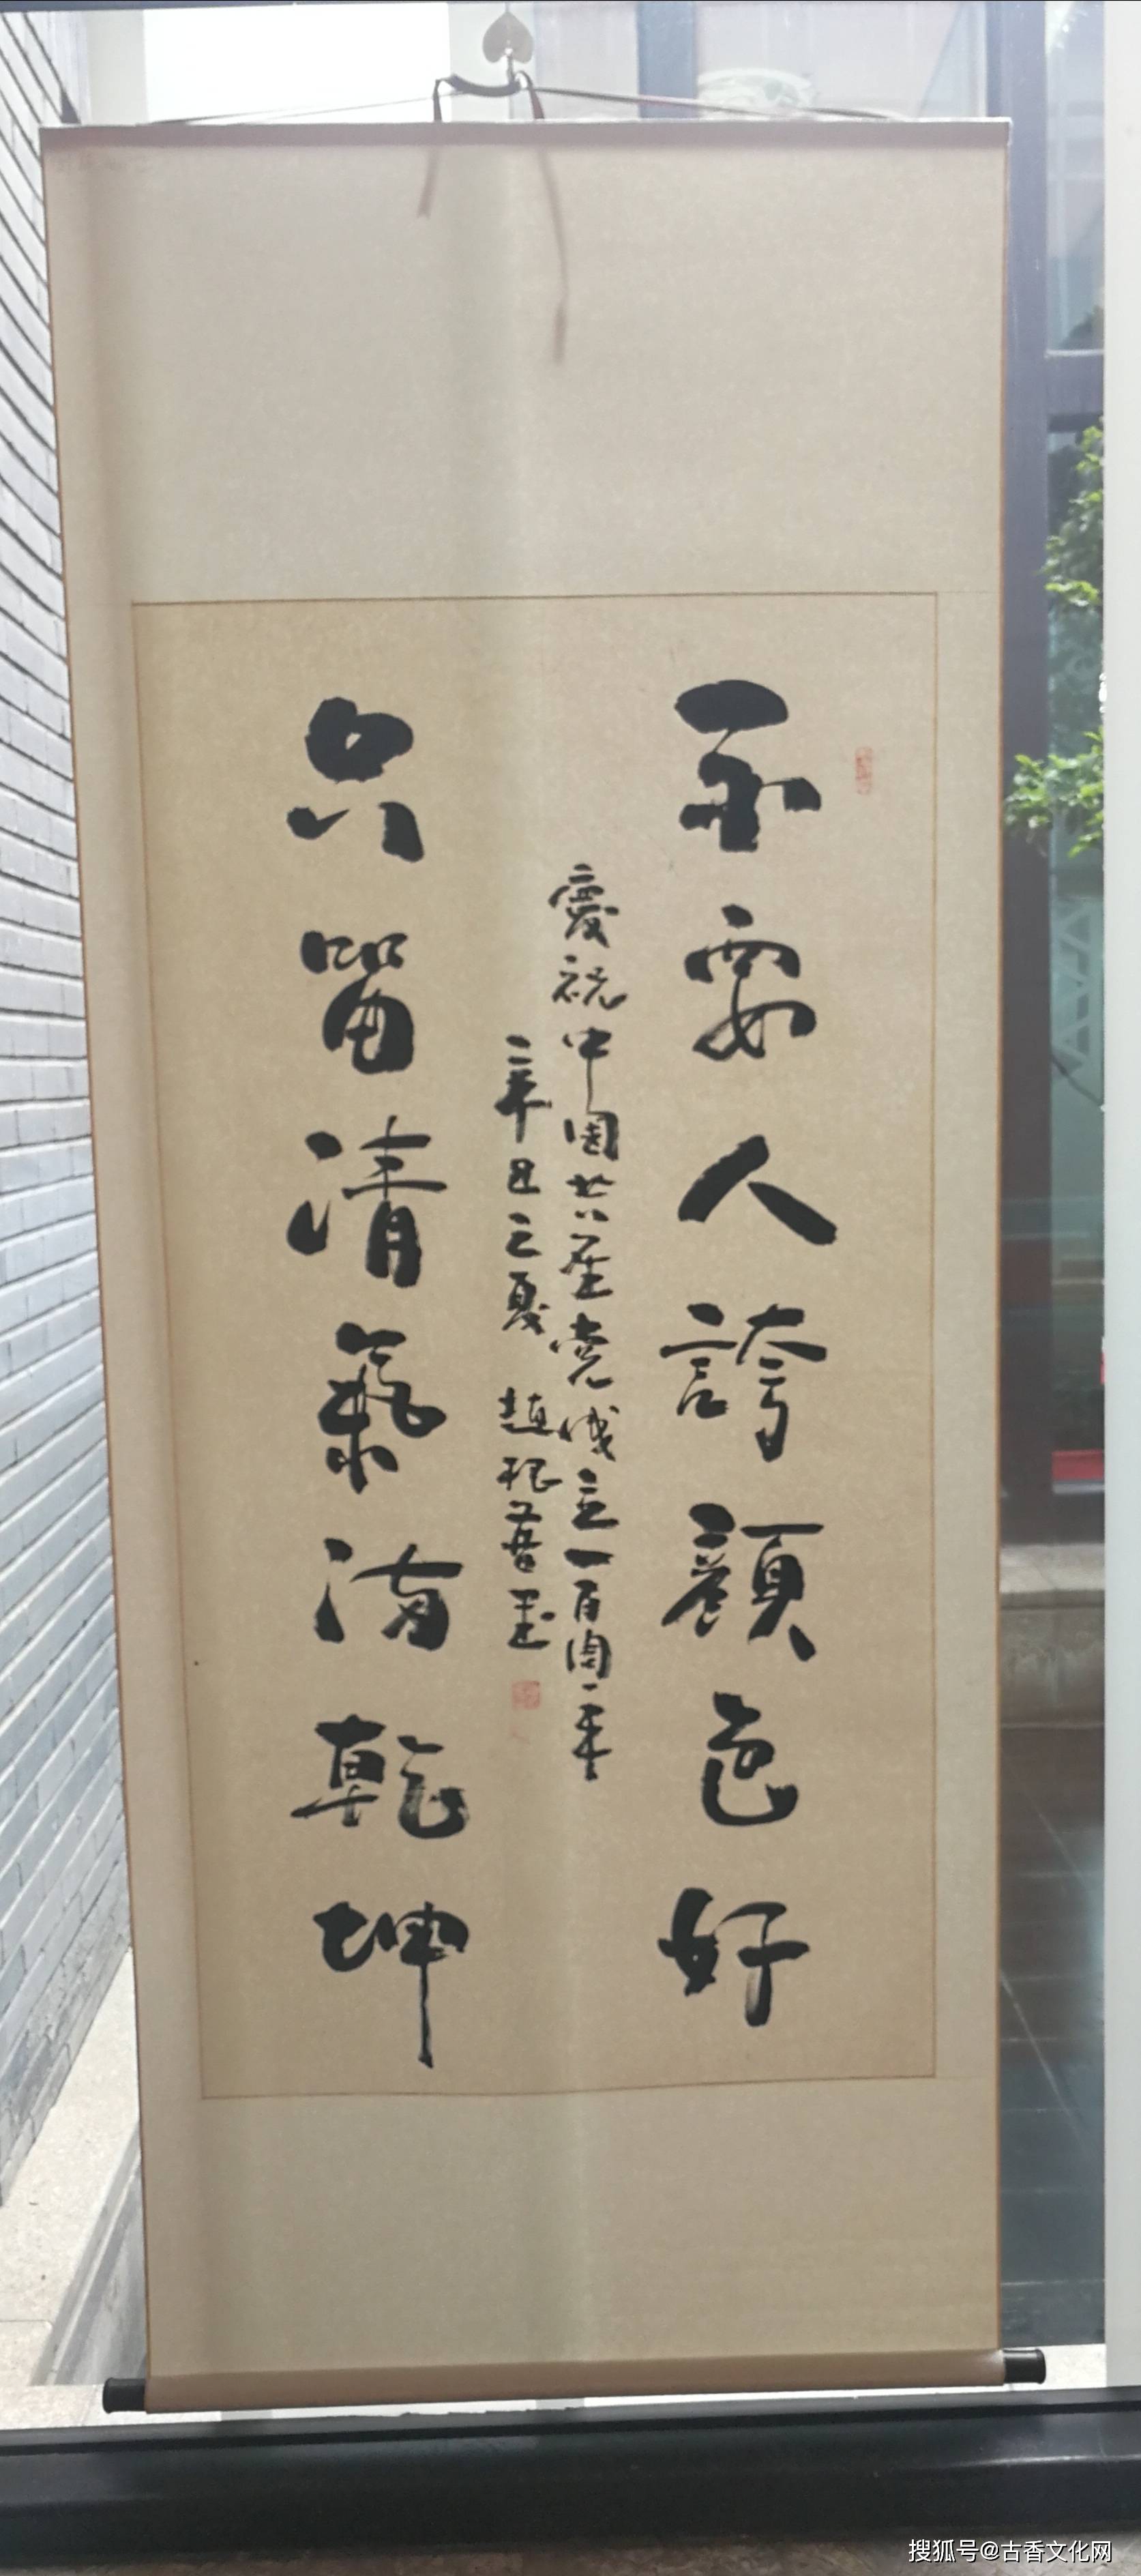 不要人誇顏色好
慶祝中國共産党成立一百周年
辛丑之夏 趙根喜书
只留清氣满乾坤
搜狐号@古香文化网